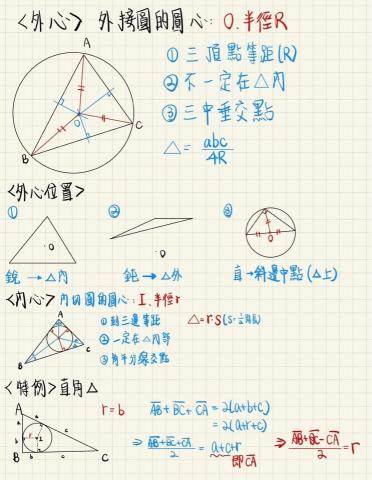 <外心> 外接圓的圓心: O.半徑R
A
B
C
O
① 三頂點等距(R)
② 不一定在△內
③ 三中垂交點
△ = abc/4R
<外心位置>
① ② ③
O
O
O
銳 → △內
鈍 → △外
直 → 斜邊中點 (△上)
<內心> 內切圓的圓心: I.半徑r
A
B
C
① 到三邊等距
② 一定在△內部
③ 角平分線交點
△ = r·s (s = 1/2周長)
<特例> 直角△
A
B
C
r = b
AB + BC + CA = 2(a+b+c)
= 2(a+r+c)
⇒ (AB+BC+CA)/2 = a+c+r
即CA
⇒ (AB+BC-CA)/2 = r